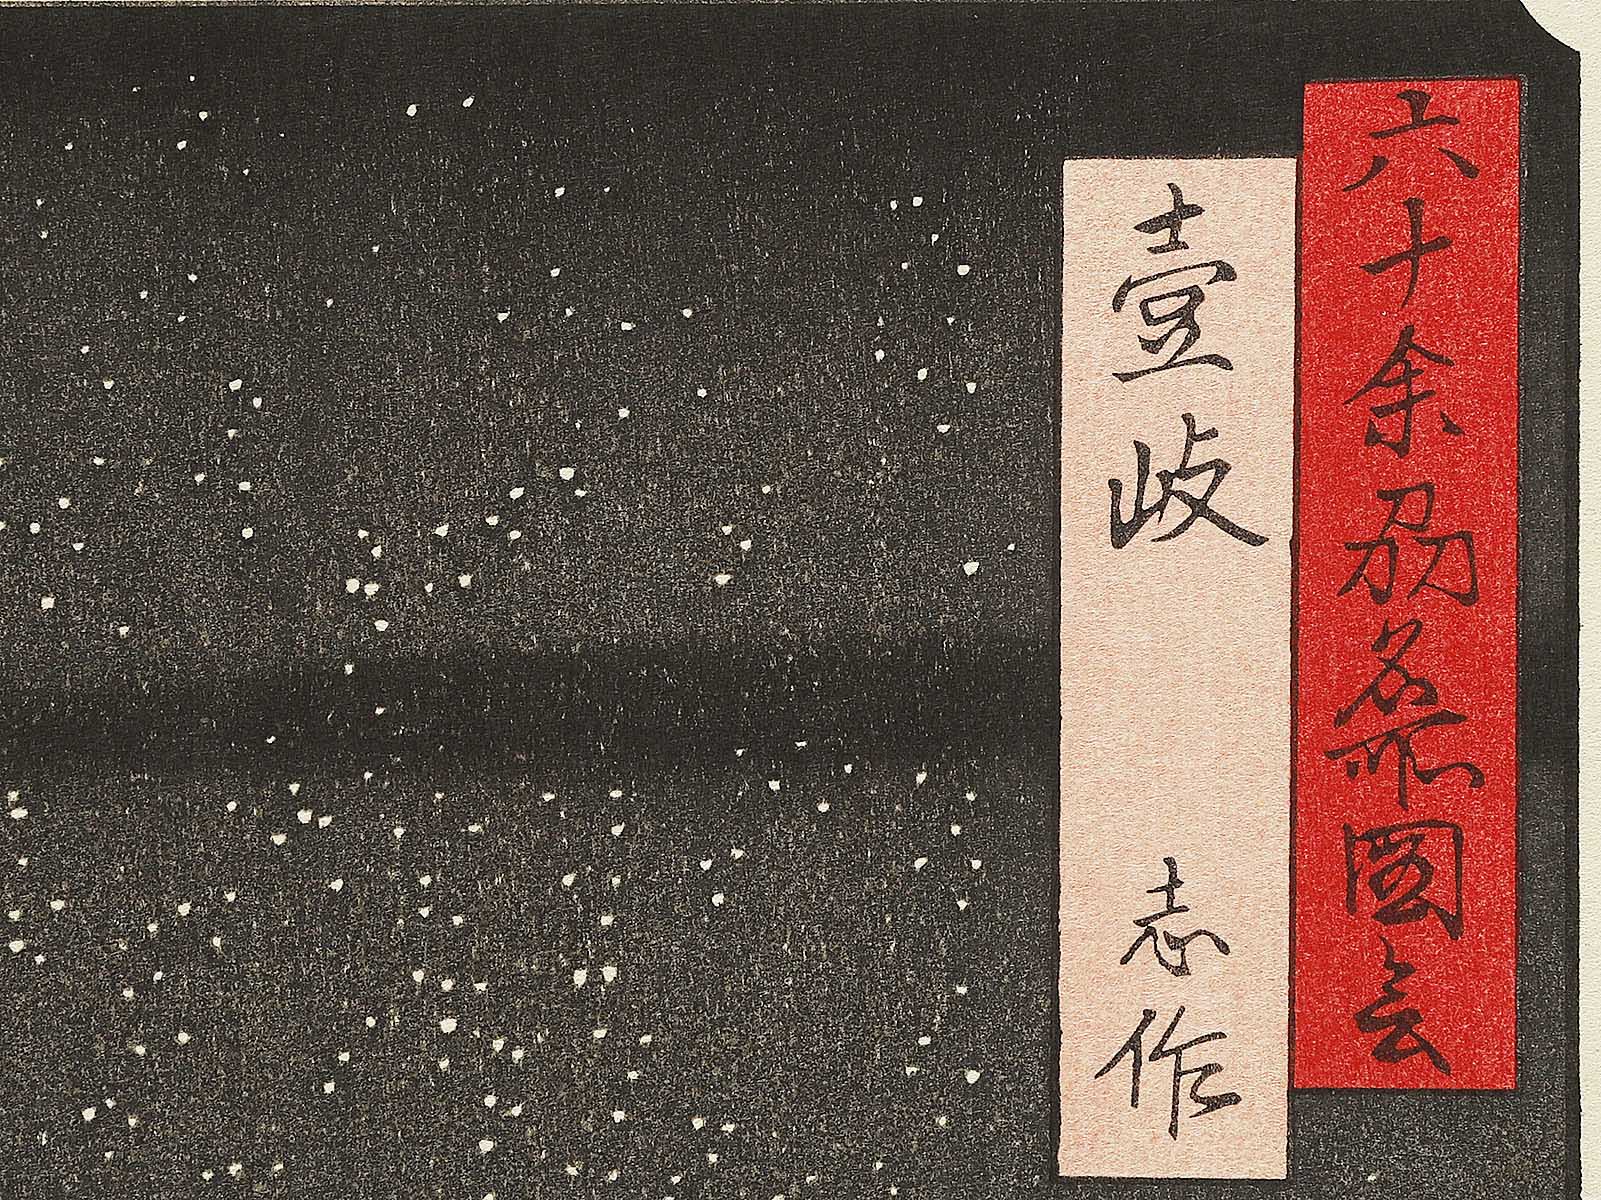 六十余刕名所圖会
壹岐 志作